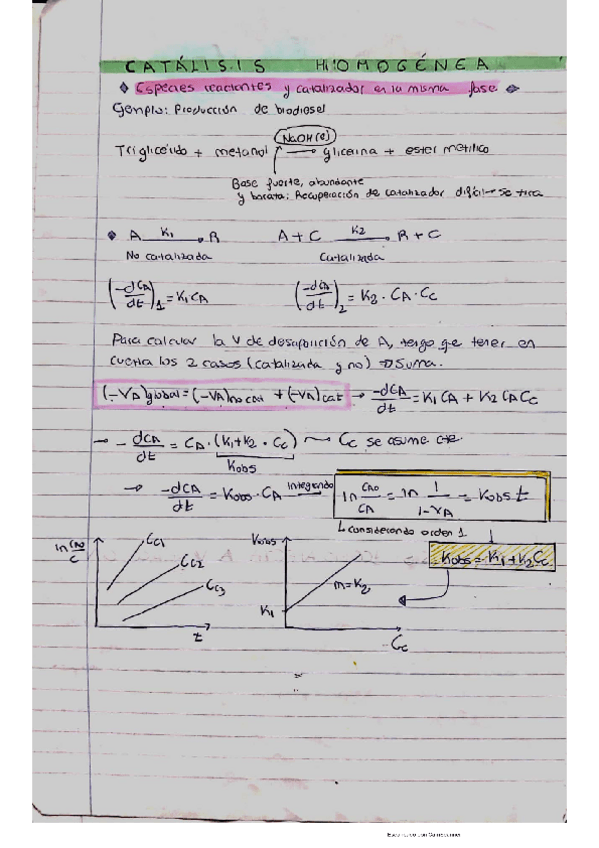 CATÁLISIS HOMOGÉNEA
Especies reactantes y catalizador en la misma fase
Ejemplo: Producción de biodiesel
NaOH(l)
Triglicérido + metanol → glicerina + ester metílico
Base fuerte, abundante
y barata; Recuperación de catalizador difícil → se tira
A —K1→ R A + C —K2→ R + C
No catalizada Catalizada
(-dCA/dt)1 = K1 CA (-dCA/dt)2 = K2 · CA · CC
Para calcular la V de desaparición de A, tengo que tener en
cuenta los 2 casos (catalizada y no) → Suma.
(-VA)global = (-VA)no cat + (-VA)cat → -dCA/dt = K1 CA + K2 CA CC
→ -dCA/dt = CA · (K1 + K2 · CC) → CC se asume cte
Kobs
→ -dCA/dt = Kobs · CA integrando ln CA0/CA = ln 1/1-XA = Kobs t
considerando orden 1.
Kobs = K1 + K2 CC
ln CA0/C CC1 CC2 CC3 t
Kobs K1 m = K2 CC
Escaneado con CamScanner